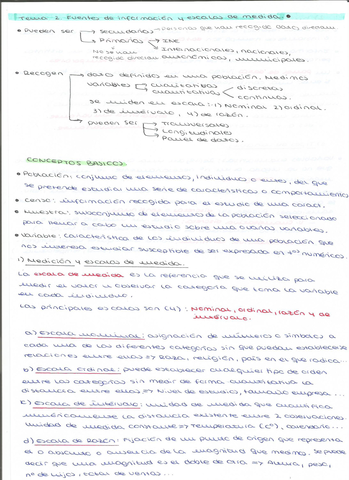 Tema 1. Fuentes de información y escalas de medida.
• Pueden ser → Secundarias → personas que han recogido datos, dienan
→ Primarias → INE
No se han recogido → Internacionales, nacionales, autonómicas, municipales.
• Recogen → datos definidos en una población. Medimos
variables → cualitativas
cuantitativas → discretas
continuas.
Se miden en escala: 1) Nominal 2) ordinal.
3) de intervalo, 4) de razón.
→ pueden ser → Transversales
→ Longitudinales
→ Panel de datos.
CONCEPTOS BASICOS:
• Población: conjunto de elementos, individuos o entes, del que
se pretende estudiar una serie de características o comportamiento
• Censo: información recogida para el estudio de una caract.
• Muestra: subconjunto de elementos de la población seleccionado
para llevar a cabo un estudio sobre una o varias variables.
• Variable: característica de los individuos de una población que
nos interesa estudiar susceptible de ser expresado en nos numéricos.
1) Medición y escalas de medida.
La escala de medida es la referencia que se utiliza para
medir el valor u observar la categoría que toma la variable
en cada individuo.
Las principales escalas son (4): Nominal, ordinal, razón y de
intervalo.
a) Escala nominal: asignación de números o símbolos a
cada una de las diferentes categorías sin que puedan establecerse
relaciones entre ellas => Raza, religión, país en el que radica...
b) Escala Ordinal: puede establecer cualquier tipo de orden
entre las categorías sin medir de forma cuantitativa la
distancia entre ellas => Nivel de estudios, tamaño empresa...
c) Escala de Intervalo: unidad de medida que cuantifica
numéricamente la distancia existente entre 2 observaciones
Unidad de medida constante => Temperatura (Cº), calendario...
d) Escala de Razón: Fijación de un punto de origen que representa
el 0 absoluto o ausencia de la magnitud que medimos. Se puede
decir que una magnitud es el doble de otra => altura, peso,
nº de hijos, total de ventas...